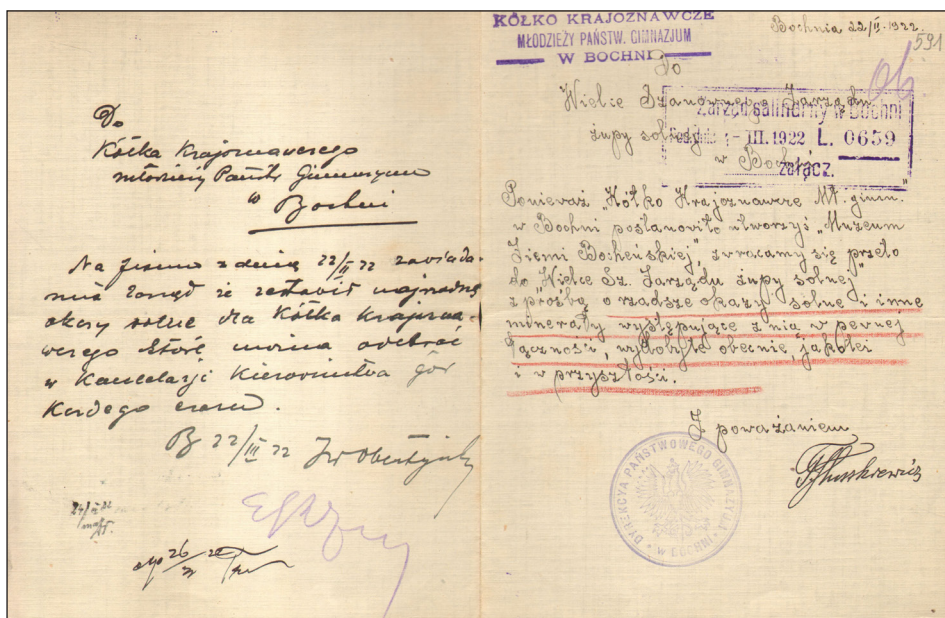 Do
Kółka Krajoznawczego
młodzieży Państw Gimnazyum
w Bochni
Na pismo z dnia 22/II 22 zawiada-
mia Zarząd że zestawił
okazy solne dla Kółka Krajozna-
wczego które można odebrać
w Kancelarji Kierownictwa gór
Każdego czasu.
B 22/III 22
KÓŁKO KRAJOZNAWCZE
MŁODZIEŻY PAŃSTW. GIMNAZJUM
W BOCHNI
Bochnia 22/II. 1922.
591
Do
Wielce Szanownego Zarządu
żupy solnej
w Bochni
Zarząd salinarny w Bochni
III. 1922 L. 0659
załącz.
Ponieważ "Kółko Krajoznawcze Mł. gimn."
w Bochni postanowiło utworzyć „Muzeum
Ziemi Bocheńskiej," zwracamy się przeto
do "Wielce Sz. Zarządu żupy solnej"
z prośbą o rzadsze okazy solne i inne
minerały występujące z nią w pewnej
łączności, wydobyte obecnie, jakoteż
i w przyszłości.
Z poważaniem
DYREKCYA PAŃSTWOWEGO GIMNAZYUM
W BOCHNI